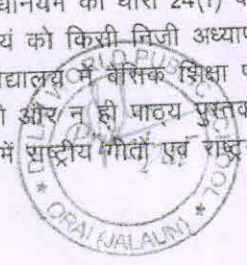 धिनियम की धारा 24(1) प
यं को किसी निजी अध्याप
द्यालय में बेसिक शिक्षा प
और न ही पाठ्य पुस्तक
में राष्ट्रीय गीतों एवं राष्ट्र
WORLD PUBLIC SCHOOL
ORAI (JALAUN)